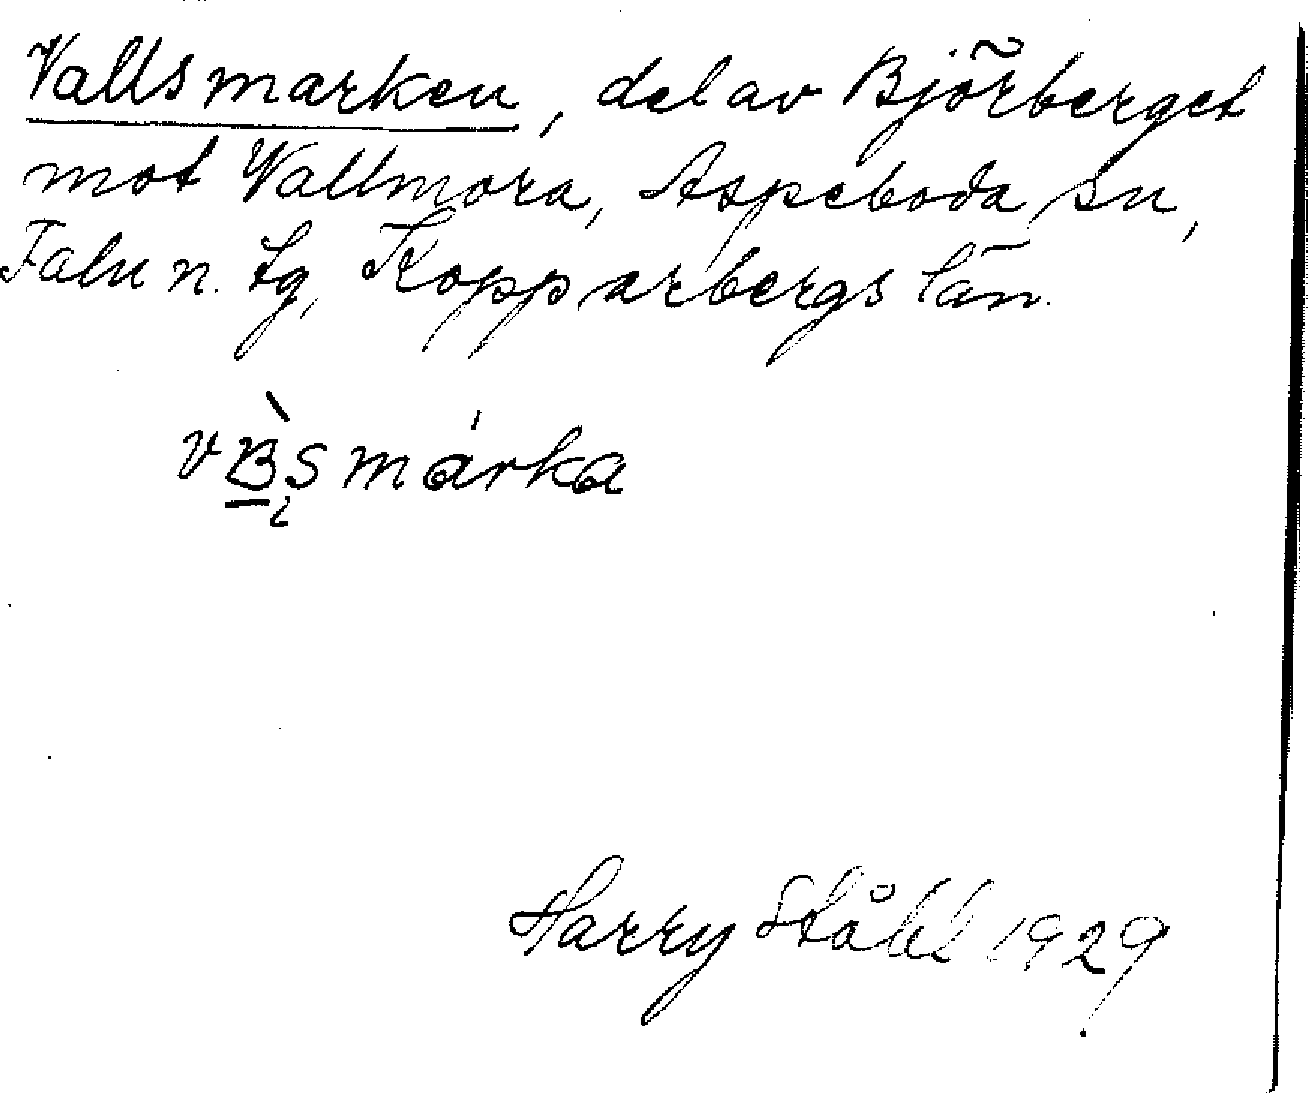 Vallsmarken, del av Björberget
mot Vallmora, Aspeboda sn,
Falu n. tg, Kopparbergs län.
Harry Ståhl 1929